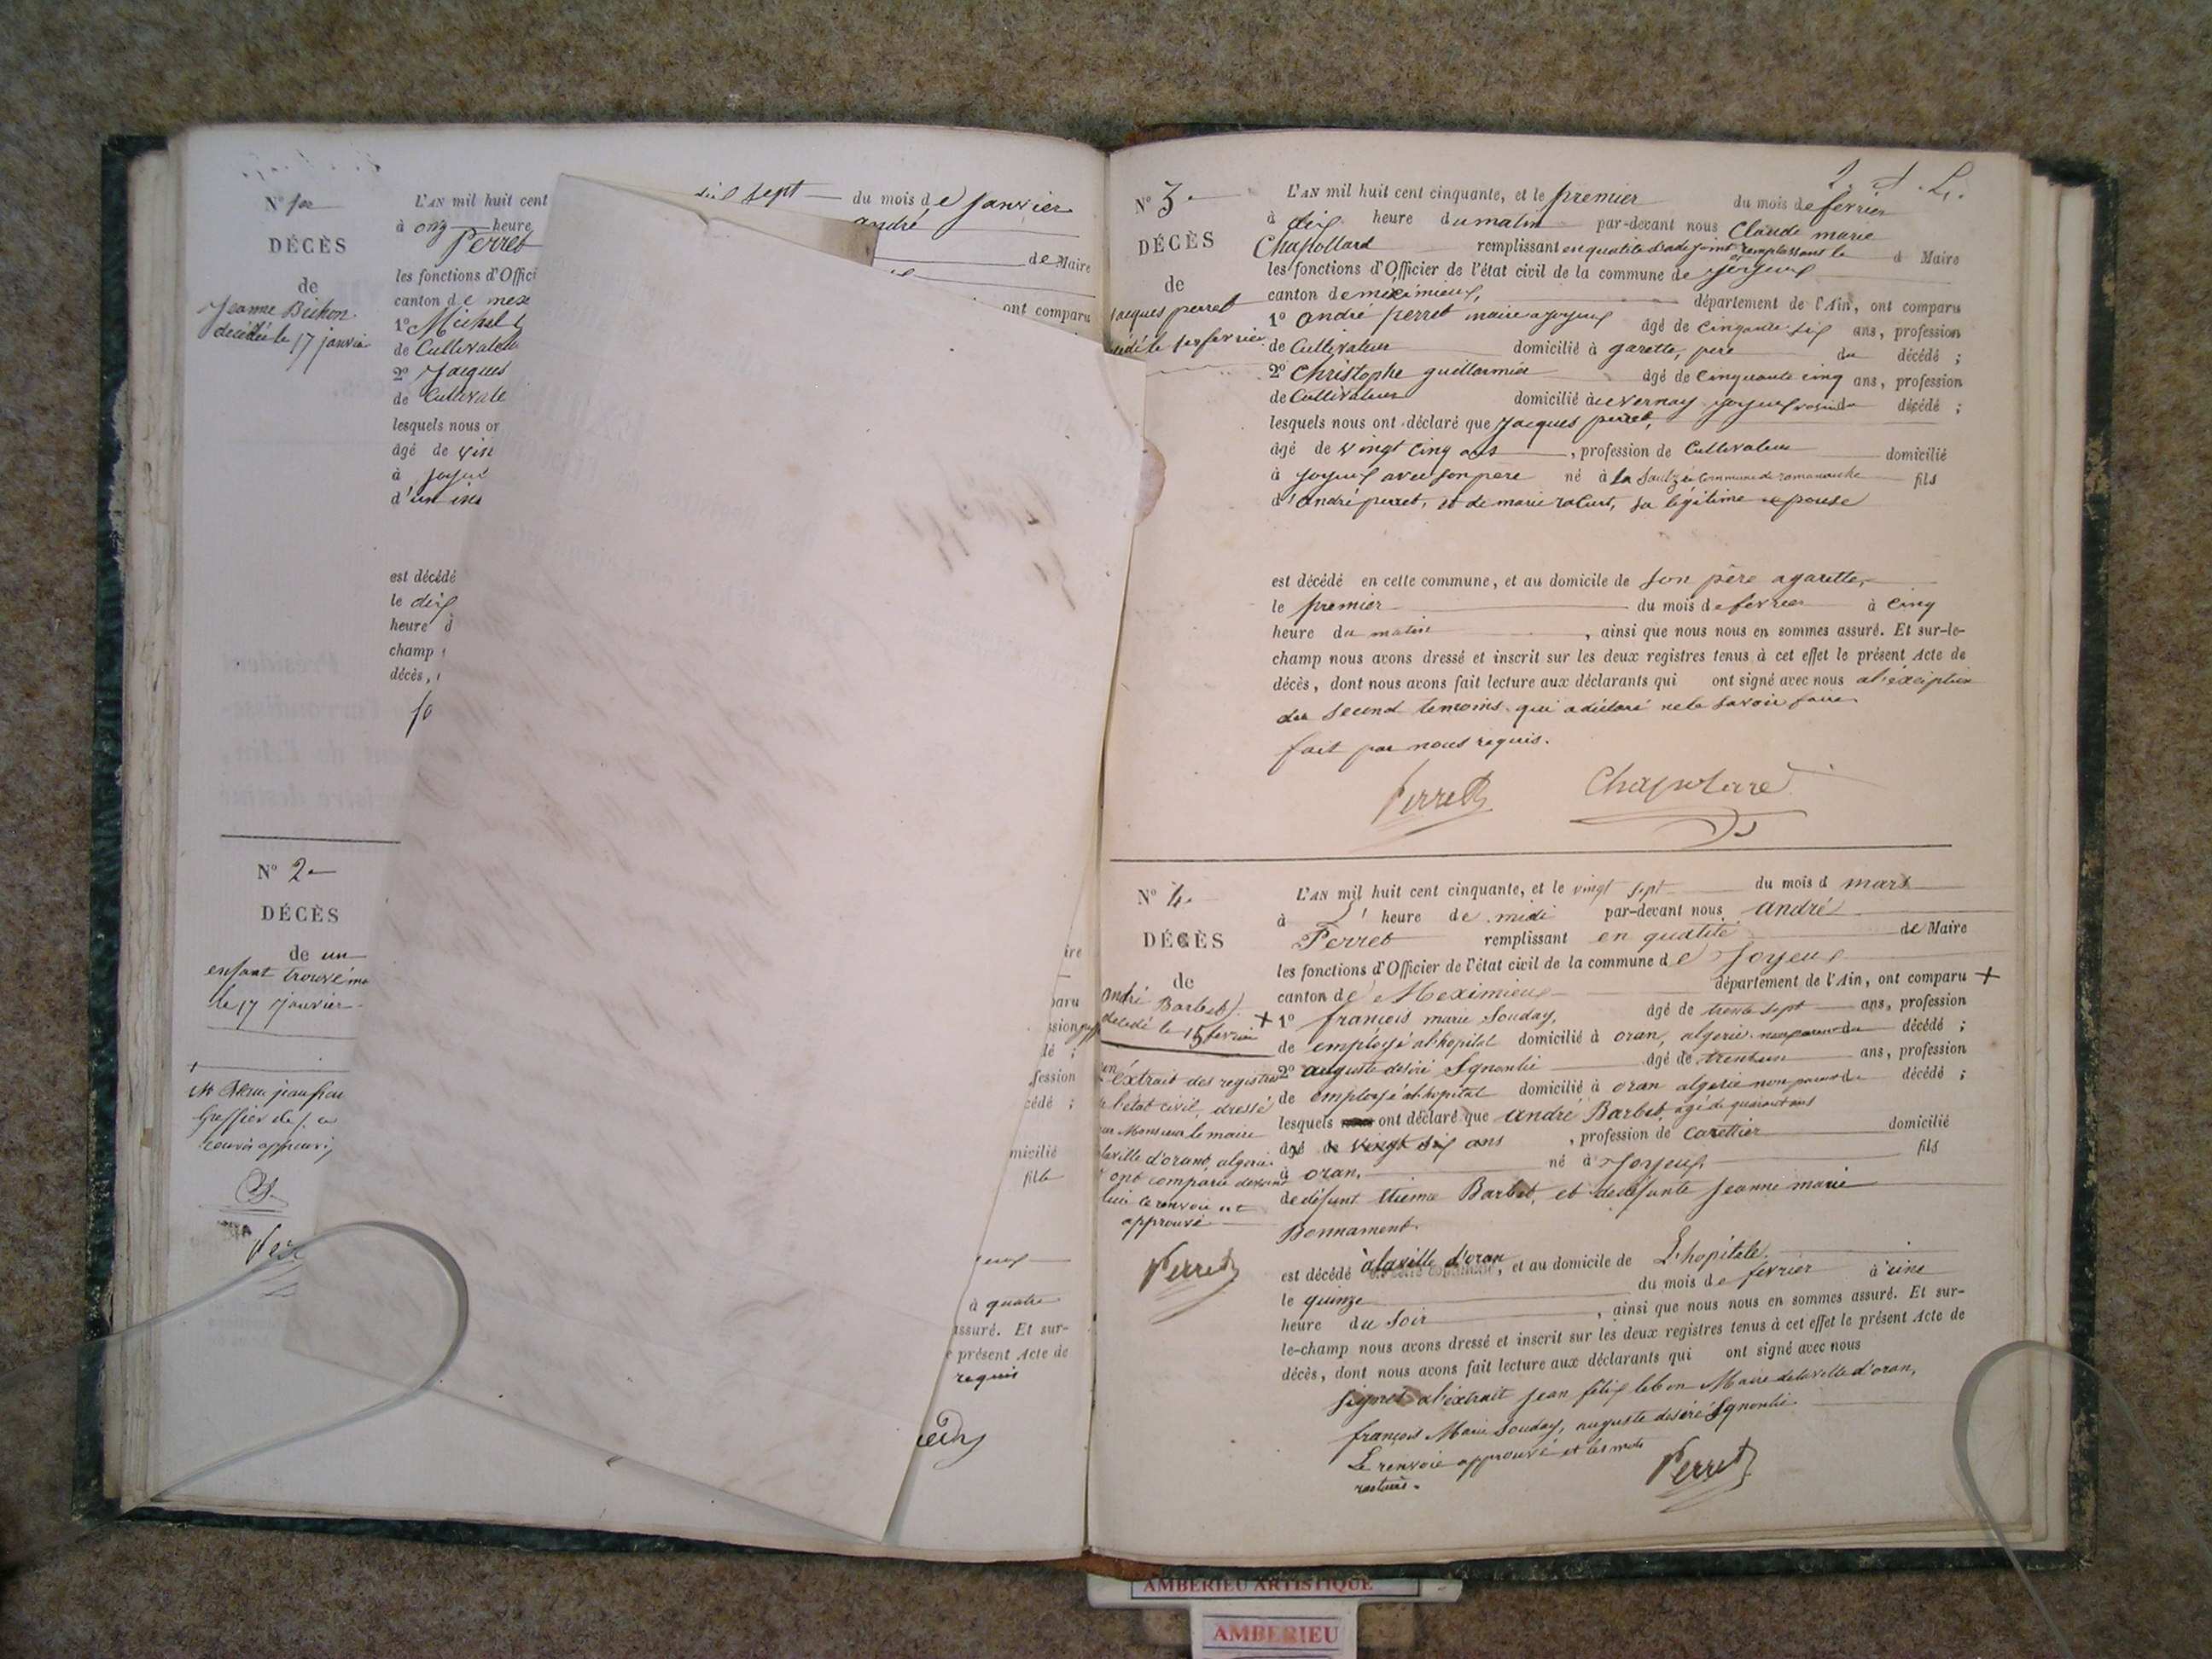 N° 1er
DÉCÈS
de
Jeanne Bichon
décédée le 17 janvier
L'AN mil huit cent
dix sept du mois de janvier
à onz heure
andré
Perret
de Maire
les fonctions d'Offici
canton de mexi
ont comparu
1° Michel
de Cultivateu
2° Jacques
de Cultivate
lesquels nous on
âgé de
à joyeu
d'un
est décédé
le dix
heure d
champ
décès,
N° 2
DÉCÈS
de un
enfant trouvé
le 17 janvier
Greffier de
Per
ire
paru
ssion
dé ;
fession
cédé ;
micilié
fille
à quatre
assuré. Et sur-
e présent Acte de
requis
N° 3
DÉCÈS
de
Jacques perret
décédé le 1er fevrier
L'AN mil huit cent cinquante, et le premier du mois de fevrier
à dix heure du matin par-devant nous Claude marie
Chapollard remplissant en qualité d'adejoint remplissant le d Maire
les fonctions d'Officier de l'état civil de la commune de joyeux
canton de meximieux, département de l'Ain, ont comparu
1° andré perret maire a joyeux âgé de cinquante six ans, profession
de Cultivateur domicilié à garette, pere du décédé ;
2° Christophe guillarmier âgé de cinquante cinq ans, profession
de Cultivateur domicilié au vernay joyeux voisin du décédé ;
lesquels nous ont déclaré que jacques perret,
âgé de vingt cinq ans, profession de Cultivateur domicilié
à joyeux avec son pere né à la Saulzée Commune de romanèche fils
d'andré perret, et de marie rabut, sa légitime epouse
est décédé en cette commune, et au domicile de son père a garette,
le premier du mois de fevrier à cinq
heure du matin, ainsi que nous nous en sommes assuré. Et sur-le-
champ nous avons dressé et inscrit sur les deux registres tenus à cet effet le présent Acte de
décès, dont nous avons fait lecture aux déclarants qui ont signé avec nous a l'exception
du second temoins qui a déclaré ne le savoir faire
fait par nous requis.
Perret Chapolard
N° 4
DÉCÈS
de
andré Barbet
décédé le 15 fevrier
L'AN mil huit cent cinquante, et le vingt sept du mois d mars
à heure de midi par-devant nous andré
Perret remplissant en qualité de Maire
les fonctions d'Officier de l'état civil de la commune de Joyeux
canton de Meximieux département de l'Ain, ont comparu +
+ 1° françois marie Souday, âgé de trente sept ans, profession
de employé a l'hopital domicilié à oran, algerie non parent du décédé ;
2° auguste désiré Sgnontié âgé de trente un ans, profession
de employé a l'hopital domicilié à oran algerie non parent du décédé ;
lesquels nous ont déclaré que andré Barbet agé de quarant ans
âgé de vingt six ans, profession de carettier domicilié
à oran, né à Joyeux fils
de défunt etienne Barbet, et de défunte jeanne marie
Bonnament
est décédé à la ville d'oran en cette commune, et au domicile de L'hopitale
le quinze du mois de fevrier à une
heure du soir, ainsi que nous nous en sommes assuré. Et sur-
le-champ nous avons dressé et inscrit sur les deux registres tenus à cet effet le présent Acte de
décès, dont nous avons fait lecture aux déclarants qui ont signé avec nous
signé a l'extrait jean félix lebon Maire de la ville d'oran,
françois Marie Souday, auguste désiré Sgnontié
Le renvoie approuvé et les mots
ratures.
Perret
extrait des registres
de l'état civil, dressé
par Monsieur le maire
la ville d'orant, algerie
ont comparu devant
lui le renvoie est
approuvé
Perret
AMBERIEU ARTISTIQUE
AMBERIEU